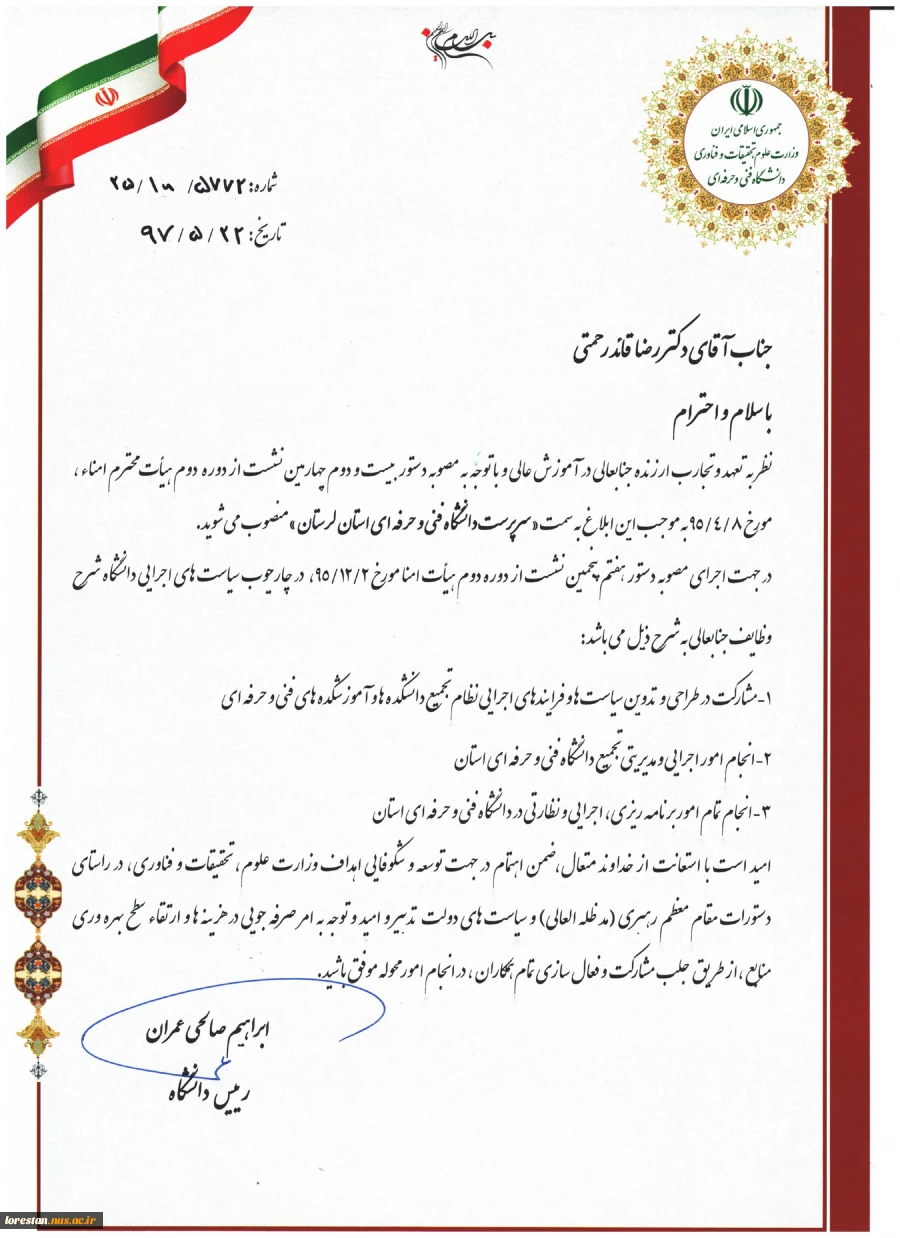 بسم الله الرحمن الرحیم
جمهوری اسلامی ایران
وزارت علوم، تحقیقات و فناوری
دانشگاه فنی و حرفه ای
شماره: ۲۵/۱۰/۵۷۷۲
تاریخ: ۹۷/۵/۲۲
جناب آقای دکتر رضا قائدرحمتی
با سلام و احترام
نظر به تعهد و تجارب ارزنده جنابعالی در آموزش عالی و با توجه به مصوبه دستور بیست و دوم چهارمین نشست از دوره دوم هیأت محترم امناء ،
مورخ ۹۵/۴/۸ به موجب این ابلاغ به سمت «سرپرست دانشگاه فنی و حرفه ای استان لرستان» منصوب می شوید.
در جهت اجرای مصوبه دستور هفتم پنجمین نشست از دوره دوم هیأت امنا مورخ ۹۵/۱۲/۲، در چارچوب سیاست های اجرایی دانشگاه شرح
وظایف جنابعالی به شرح ذیل می باشد:
۱-مشارکت در طراحی و تدوین سیاست ها و فرایندهای اجرایی نظام تجمیع دانشکده ها و آموزشکده های فنی و حرفه ای
۲-انجام امور اجرایی و مدیریتی تجمیع دانشگاه فنی و حرفه ای استان
۳-انجام تمام امور برنامه ریزی، اجرایی و نظارتی در دانشگاه فنی و حرفه ای استان
امید است با استعانت از خداوند متعال، ضمن اهتمام در جهت توسعه و شکوفایی اهداف وزارت علوم، تحقیقات و فناوری، در راستای
دستورات مقام معظم رهبری (مد ظله العالی) و سیاست های دولت تدبیر و امید و توجه به امر صرفه جویی در هزینه ها و ارتقاء سطح بهره وری
منابع ، از طریق جلب مشارکت و فعال سازی تمام همکاران ، در انجام امور محوله موفق باشید.
ابراهیم صالحی عمران
رییس دانشگاه
lorestan.nus.ac.ir